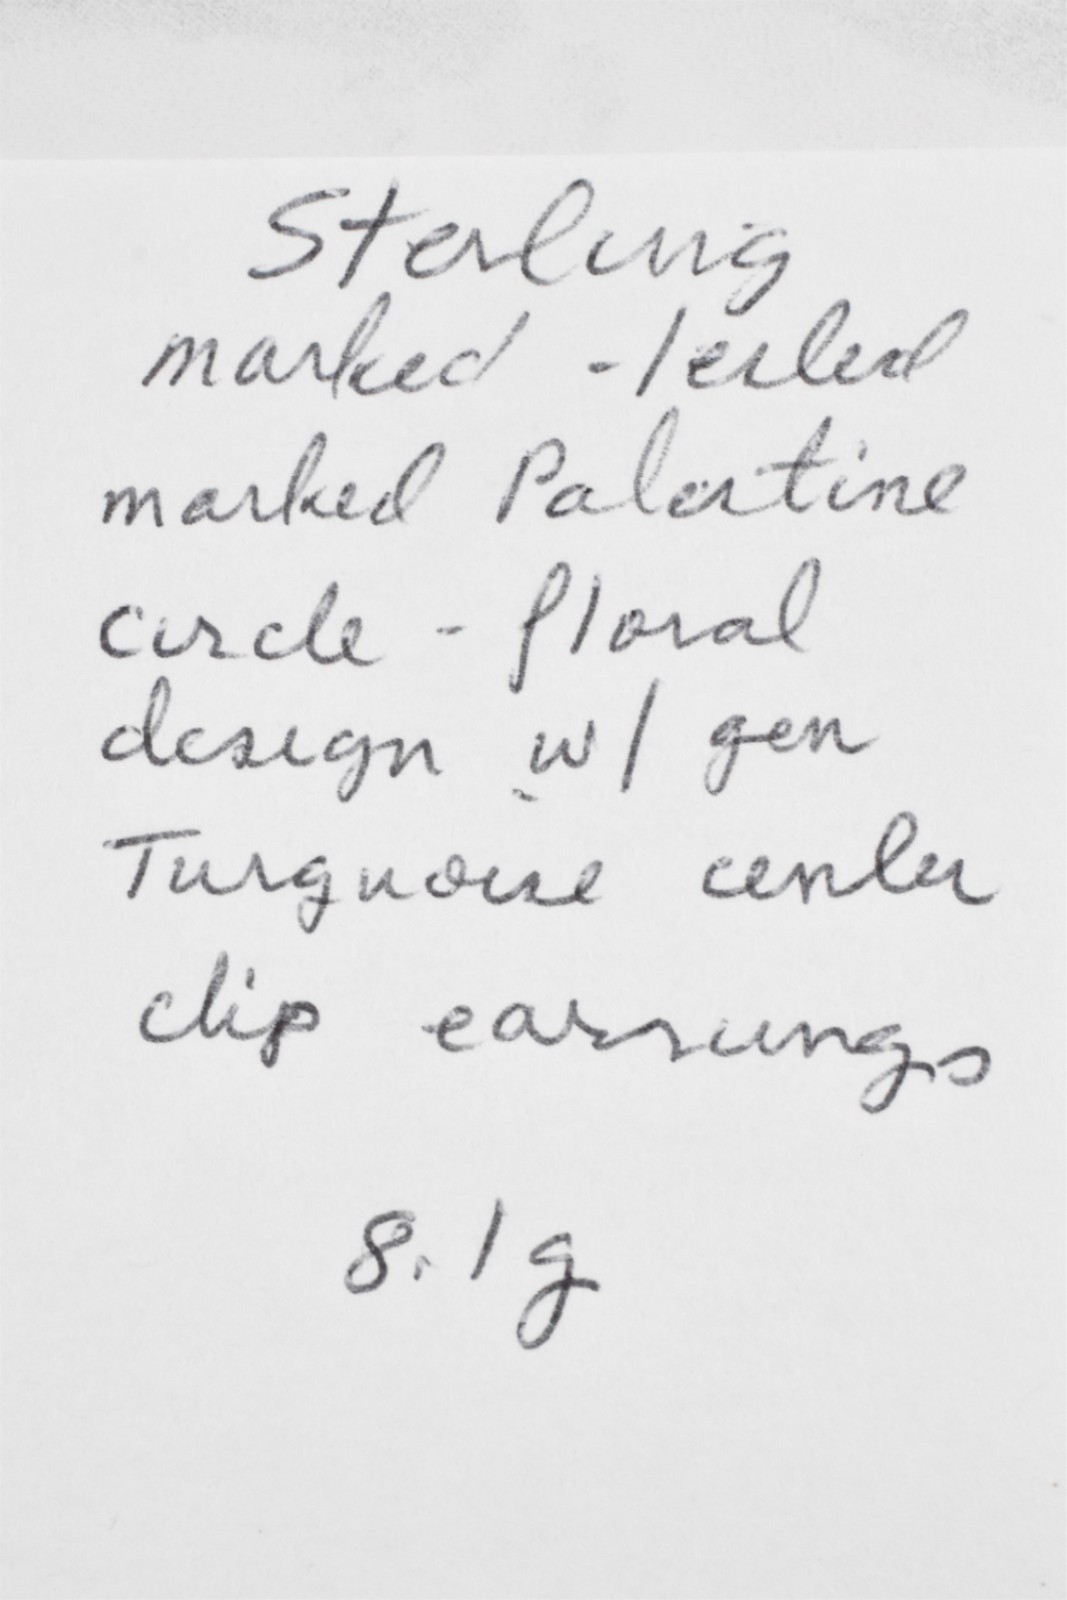 Sterling
marked - tested
marked Palestine
circle - floral
design w/ gen
Turquoise center
clip earrings
8.1g